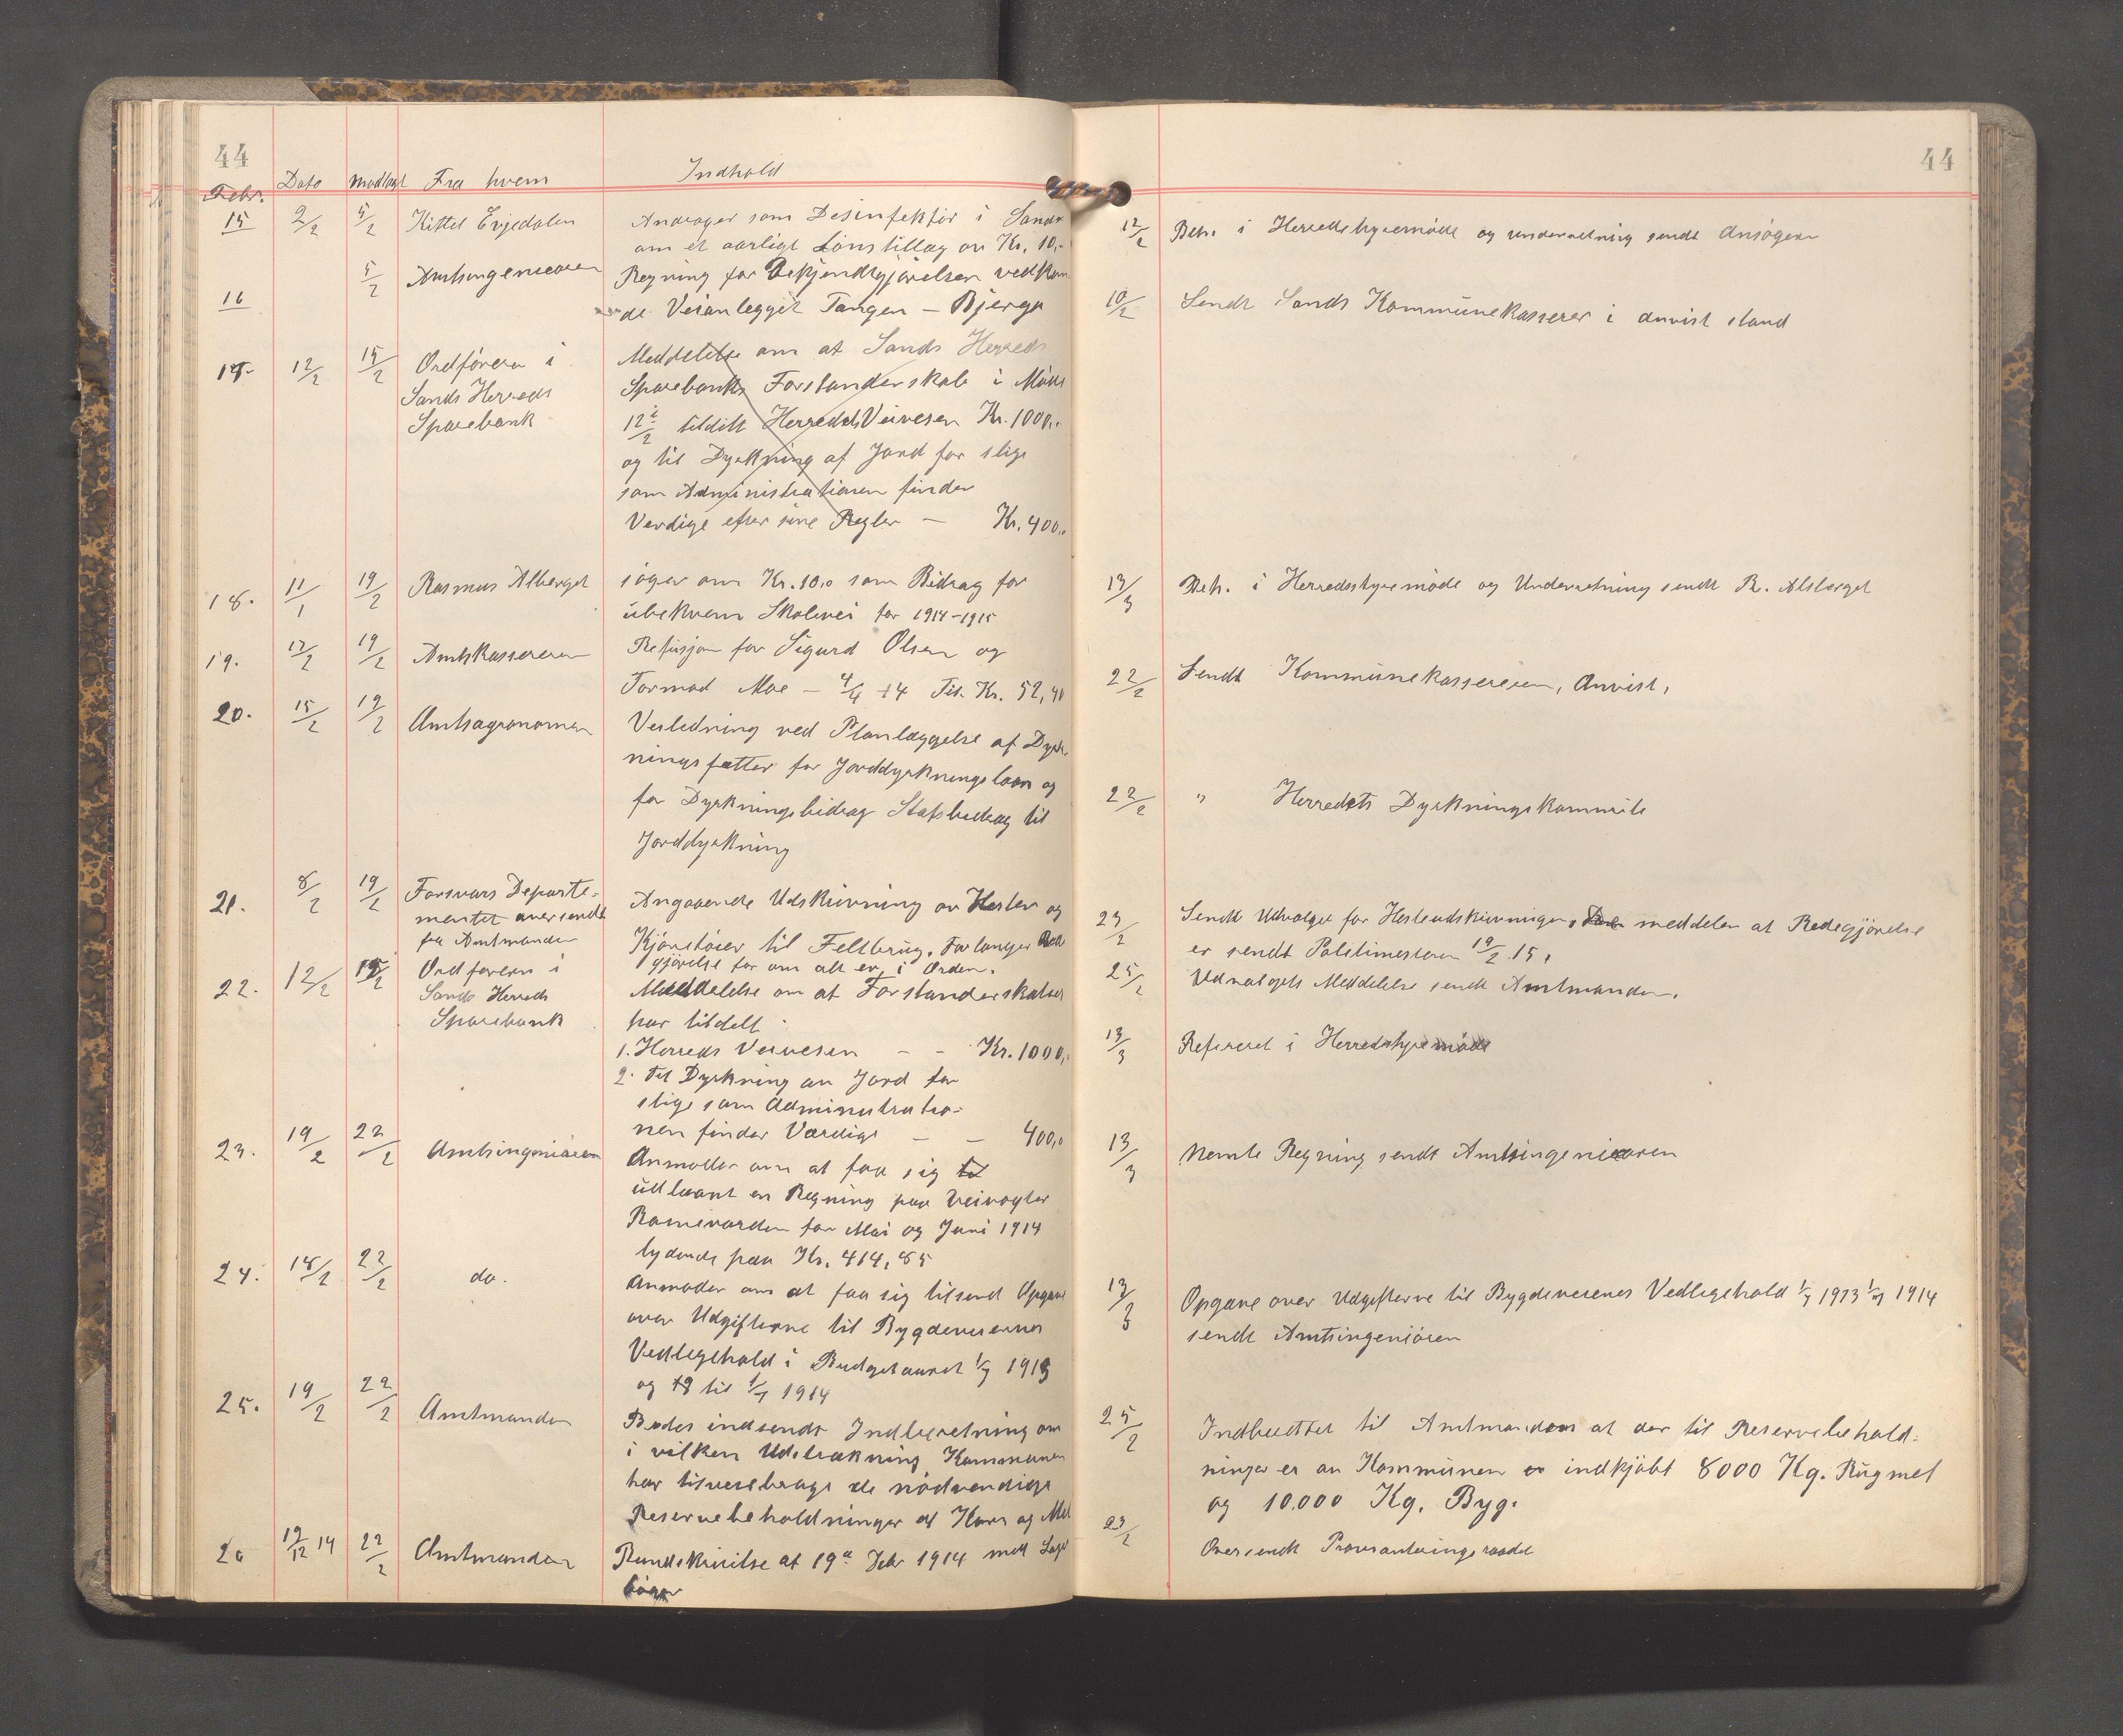 44
Febr. Dato Modtagt Fra hvem Indhold
15 2/2 5/2 Kittel Erjedalen Andrager som Desinfektör i Sand
om et aarligt Lönstillæg av Kr. 10,-
16 5/2 Amtsingeniøren Regning for Bekjendtgjørelsen vedkom
de Veianlegget Tangen - Bjerga
17. 12/2 15/2 Ordföreren i Meddelelse om at Sands Herreds
Sands Herreds Sparebanks Forstanderskab i Möde
Sparebank 12/2 tildelt Herredets Veivesen Kr. 1000,-
og til Dyrkning af Jord for slige
som Administrationen finder
Verdige efter sine Regler - Kr. 400,-
18. 11/1 19/2 Rasmus söger om Kr. 10,0 som Bidrag for
ubekvem Skolevei for 1914-1915
19. 17/2 19/2 Amtskassereren Refusjon for Sigurd Olsen og
Tormod Moe - Kr. 52,40
20. 15/2 19/2 Amtsagronomen Veiledning ved Planlæggelse af Dyrk-
nings for Jorddyrkningslaan og
for Dyrkningsbidrag Statsbidrag til
Jorddyrkning
21. 8/2 19/2 Forsvars Departe- Angaaende Udskrivning av Hester og
mentet oversendt
fra Amtmanden Kjøretøier til Feltbrug. Forlanger Rede
gjörelse for om alt er i Orden.
22. 12/2 15/2 Ordföreren i Meddelelse om at Forstanderskabet
Sands Herreds har tildelt
Sparebank 1. Herreds Veivesen - - Kr. 1000,-
2. til Dyrkning av Jord for
slige som Administratio-
nen finder Værdige - - 400,0
23. 19/2 22/2 Amtsingeniören Anmoder om at faa sig
udlaant en Regning paa Veivogter
for Mai og Juni 1914
lydende paa Kr. 414,85
24. 18/2 22/2 do. Anmoder om at faa sig tilsend Opgave
over Udgifterne til Bygdeveienes
Vedligehold i Budgetaaret 1/7 1913
og til 1/7 1914
25. 19/2 22/2 Amtmanden Bedes indsendt Indberetning om
i vilken Udstrækning Kommunen
har tilveiebragt de nødvendige
Reservebeholdninger af Korn og Mel
26 19/12 14 22/2 Amtmanden Rundskrivelse af 19de 1914 med
böger
44
12/2 Beh. i Herredstyremøde og underretning sendt Ansøgeren
10/2 Sendt Sands Kommunekasserer i anvist stand
13/3 Beh. i Herredsstyremøde og Underretning sendt R.
22/2 Sendt Kommunekassereren, Anvist.
22/2 " Herredets Dyrkningskommite
23/2 Sendt Udvalget for Hesteudskrivningen, meddelen at Redegjørelse
er sendt Politimesteren 19/2 15.
25/2 Udvalgets Meddelelse sendt Amtmanden.
13/3 Refereret i Herredstyremøde
13/3 Nemte Regning sendt Amtsingeniøren
13/3 Opgave over Udgifterne til Bygdeveienes Vedligehold 1/7 1913 1/7 1914
sendt Amtsingeniören
25/2 Indberettet til Amtmanden at der til Reservebehold-
ninger er av Kommunen er indkjöbt 8000 Kg. Rugmel
og 10.000 Kg. Byg.
23/2 Oversendt Provianteringsraadet